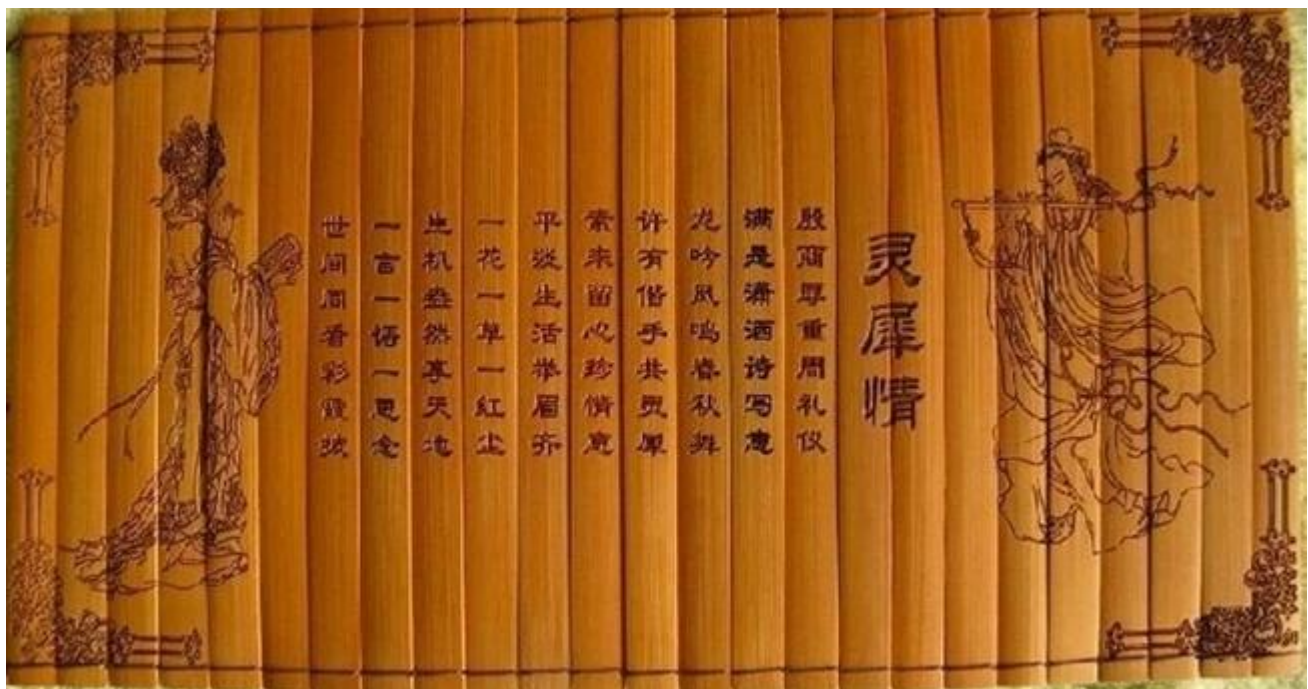 灵犀情
殷商厚重周礼仪
满是潇洒诗写意
龙吟凤鸣春秋舞
许有偕手共灵犀
素来留心珍情意
平淡生活举眉齐
一花一草一红尘
生机盎然享天地
一言一语一思念
世间同看彩霞